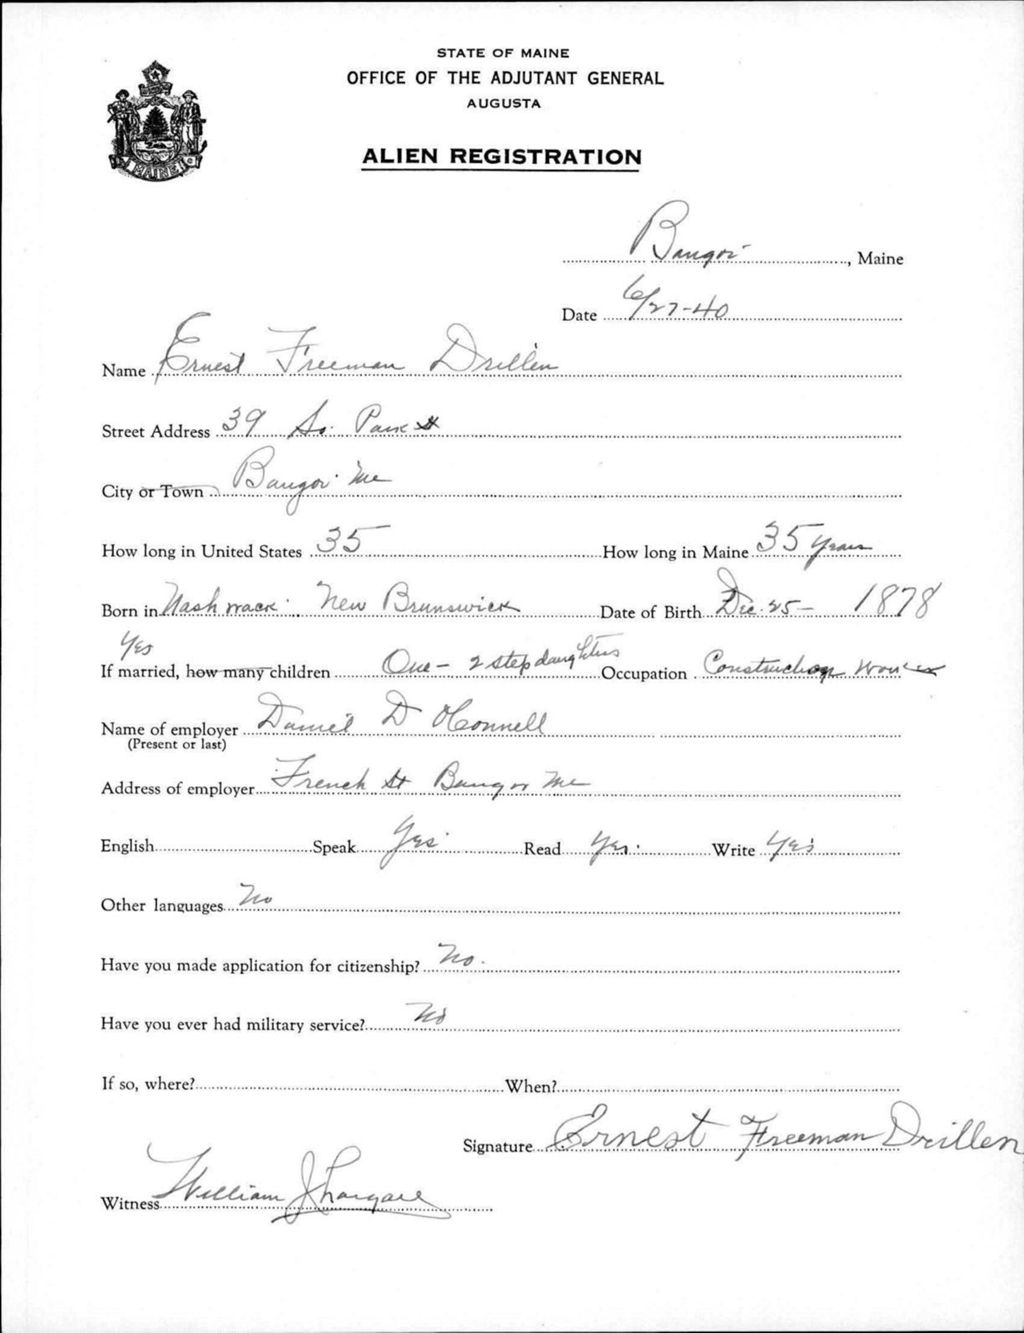 STATE OF MAINE
OFFICE OF THE ADJUTANT GENERAL
AUGUSTA
ALIEN REGISTRATION
MAINE
Bangor, Maine
Date 6/27-40
Name Ernest Freeman Drillen
Street Address 39 So. Park St
City or Town Bangor Me
How long in United States 35 How long in Maine 35 years
Born in Nashwack New Brunswick Date of Birth Dec. 25 - 1878
Yes
If married, how many children One - 2 stepdaughters Occupation Construction Worker
Name of employer Daniel D O'Connell
(Present or last)
Address of employer French St Bangor Me
English Speak Yes Read Yes Write Yes
Other languages No
Have you made application for citizenship? No.
Have you ever had military service? No
If so, where? When?
Signature Ernest Freeman Drillen
Witness William J